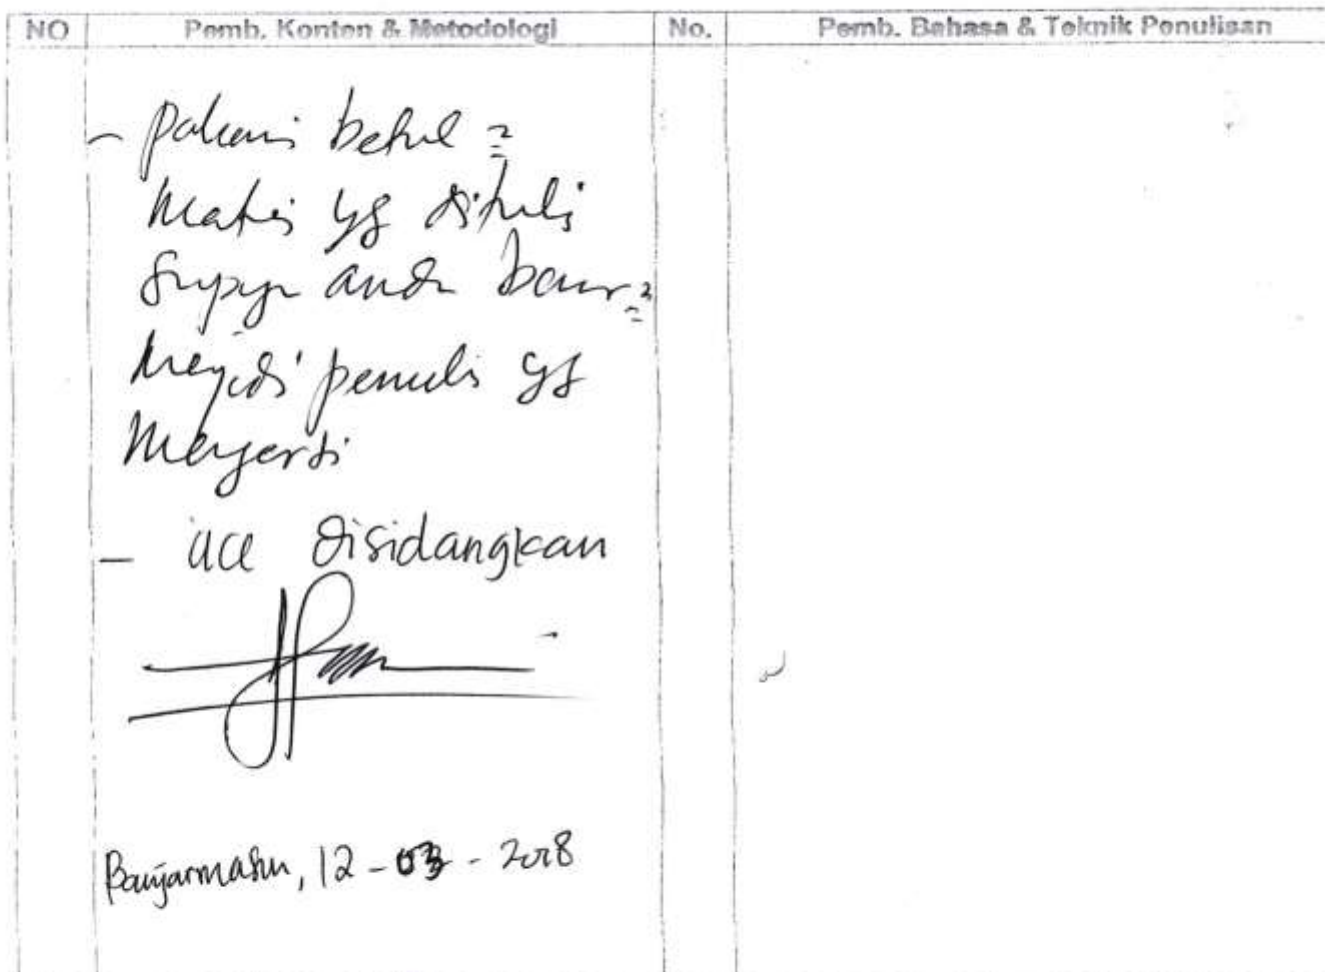 NO Pemb. Konten & Metodologi No. Pemb. Bahasa & Teknik Penulisan
- Pahami betul2
Materi yg ditulis
Supaya anda benar2
Menjadi penulis yg
Mengerti
- acc disidangkan
Banjarmasin, 12 - 03 - 2018